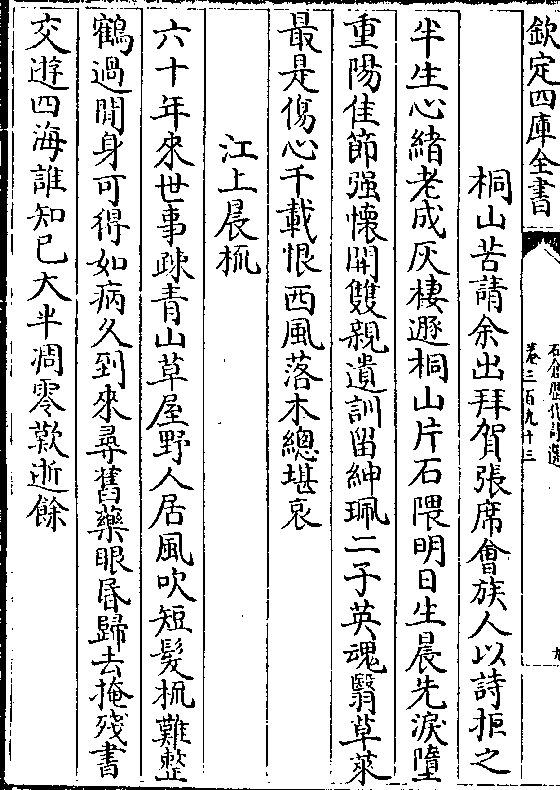 欽定四庫全書
石倉歷代詩選
卷三百九十三
桐山苦請余出拜賀張席會族人以詩拒之
半生心緒老成灰棲遯桐山片石隈明日生晨先淚墮
重陽佳節强懷開雙親遺訓留紳珮二子英魂翳草萊
最是傷心千載恨西風落木總堪哀
江上晨梳
六十年來世事疎青山草屋野人居風吹短髮梳難整
鶴過閒身可得如病久到來尋舊藥眼昏歸去掩殘書
交遊四海誰知已大半凋零歎逝餘